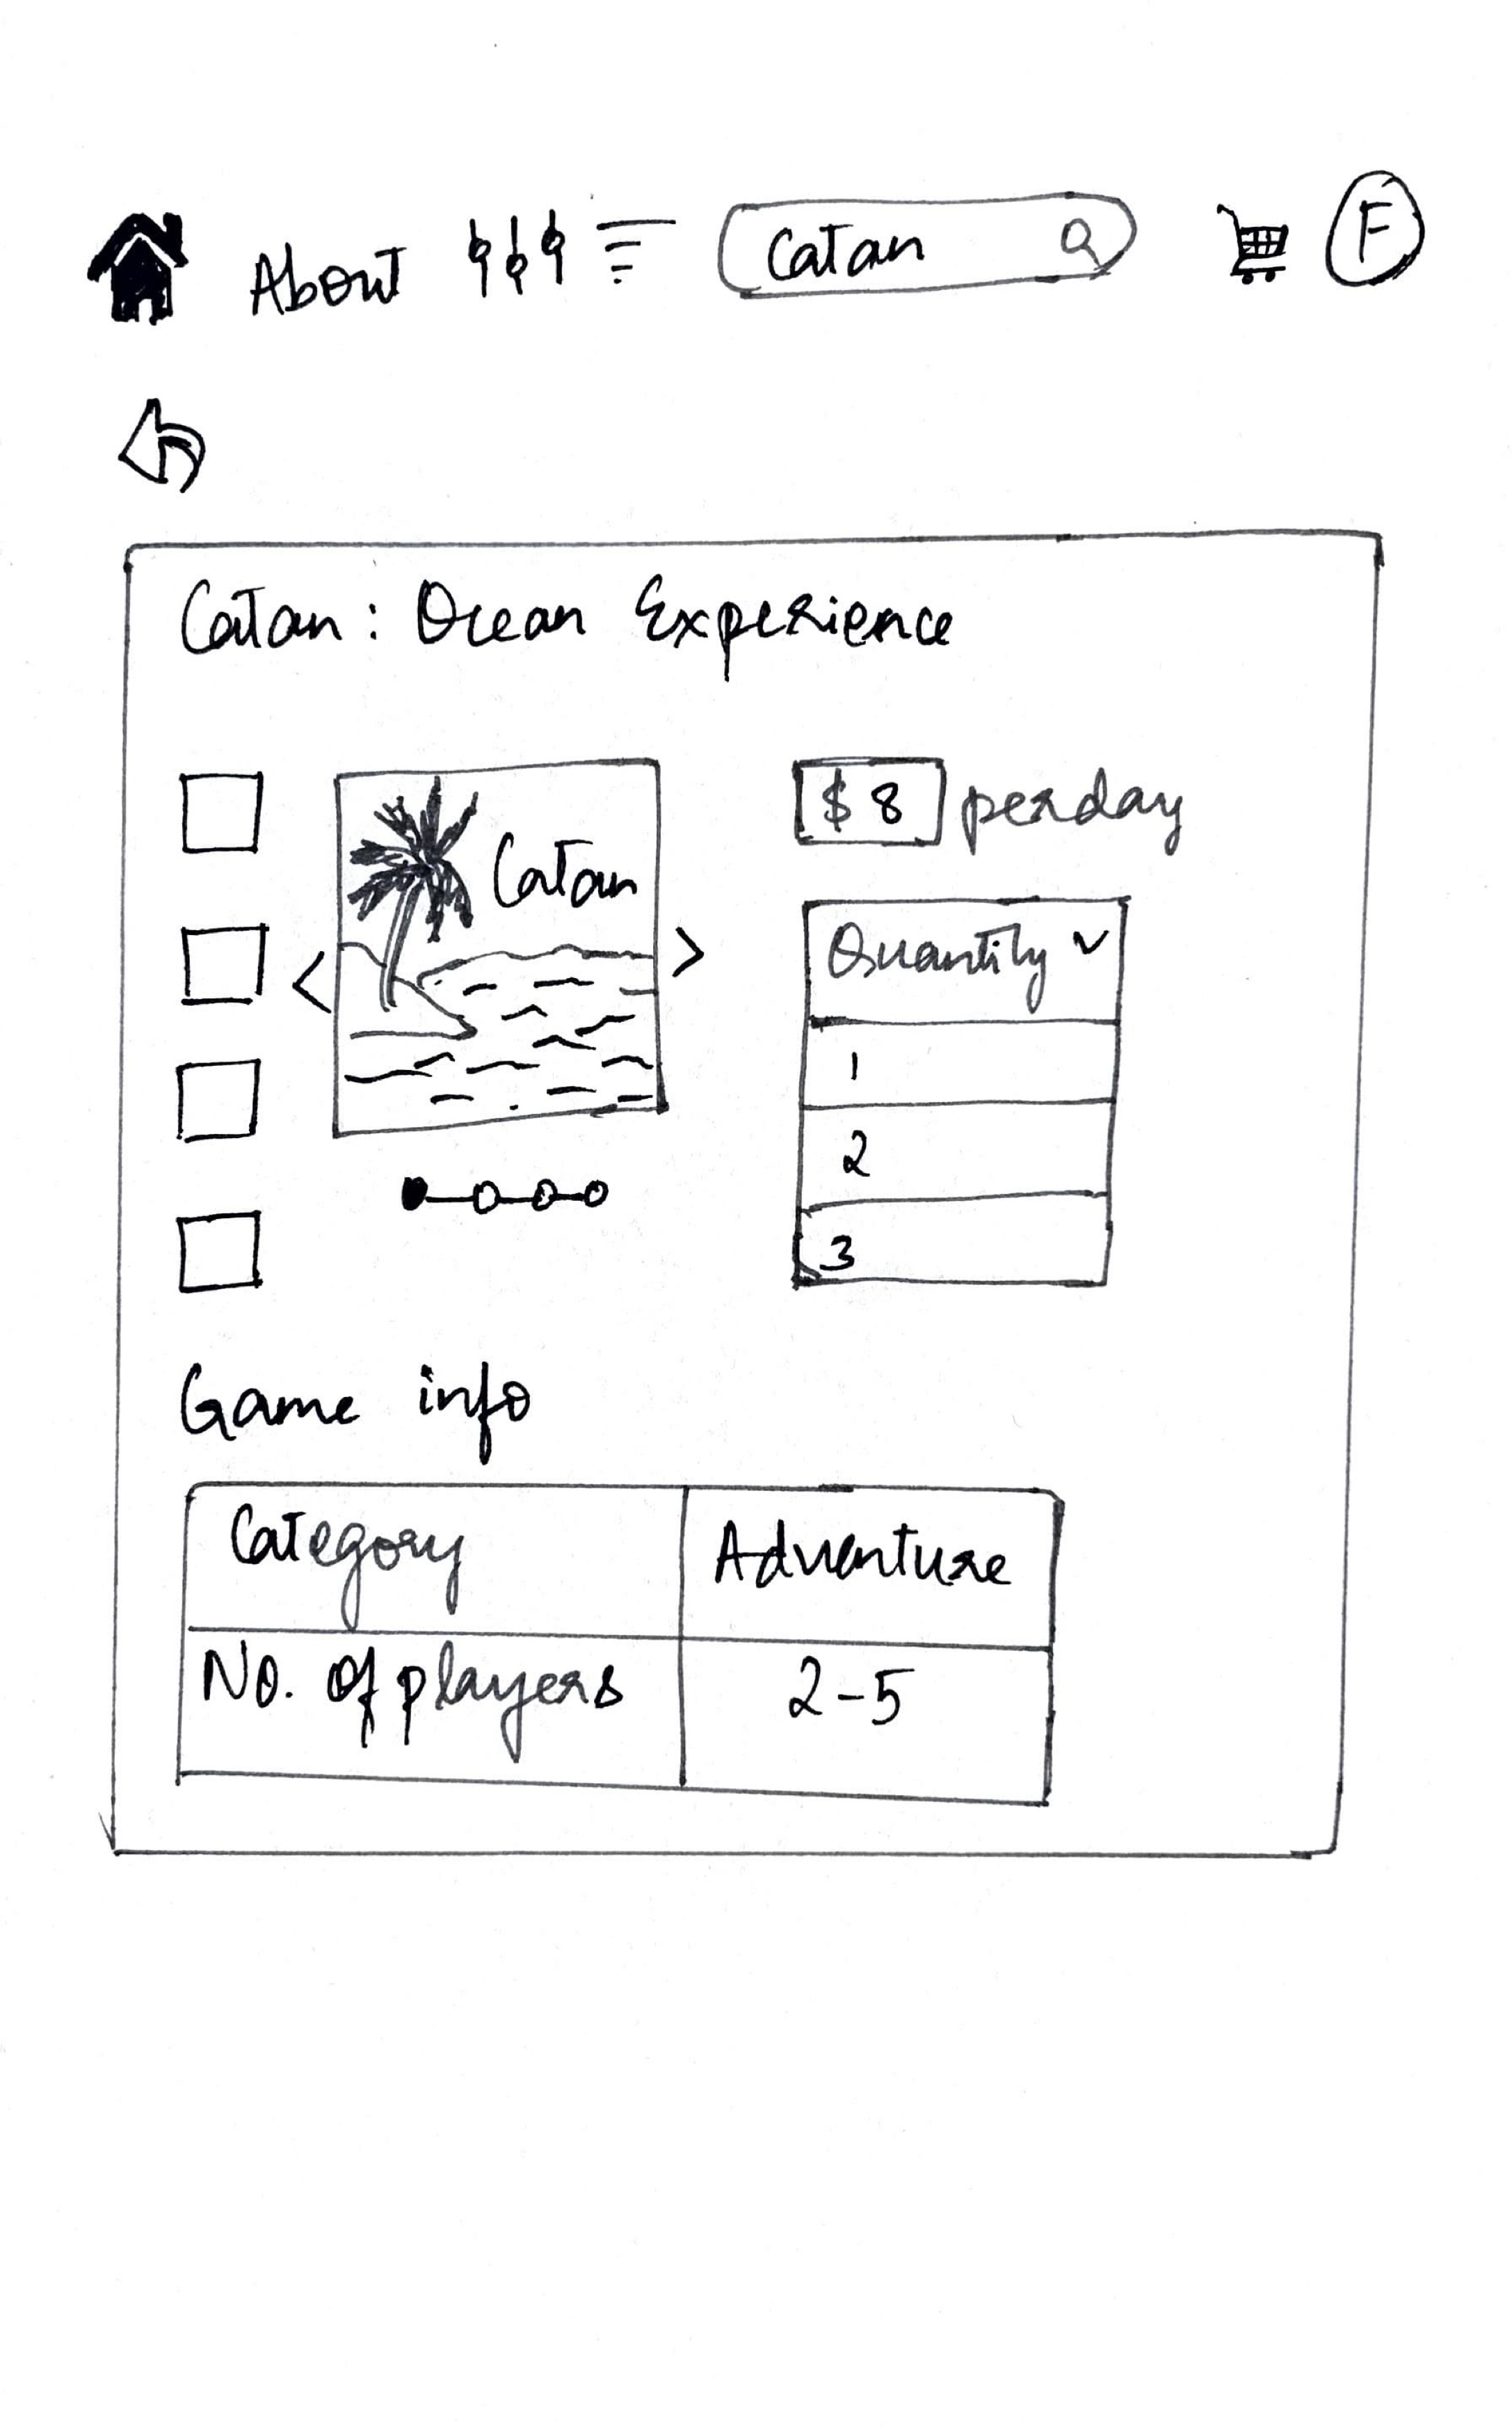 About Catan F
Catan: Ocean Experience
Catan
$8 per day
Quantity
1
2
3
Game info
Category Adventure
No. of players 2-5